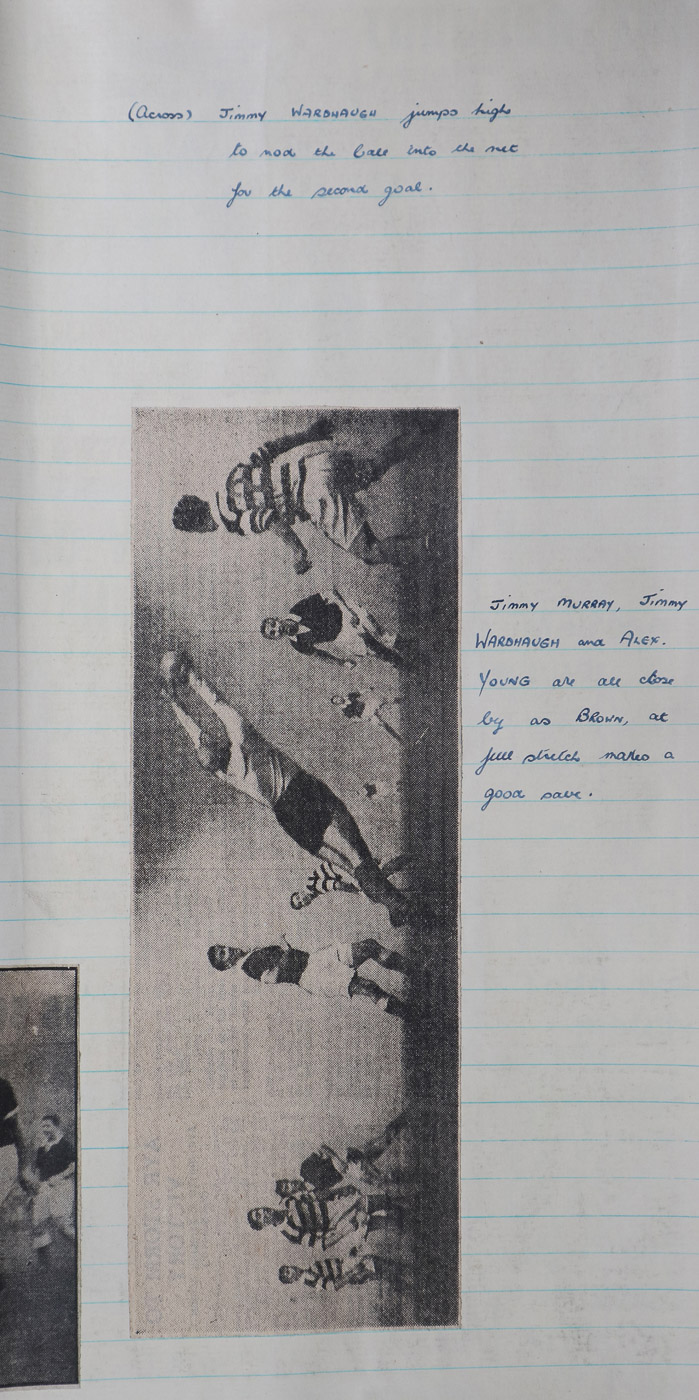 (Across) Jimmy WARDHAUGH jumps high
to nod the ball into the net
for the second goal.
Jimmy MURRAY, Jimmy
WARDHAUGH and ALEX.
YOUNG are all close
by as BROWN, at
full stretch makes a
good save.